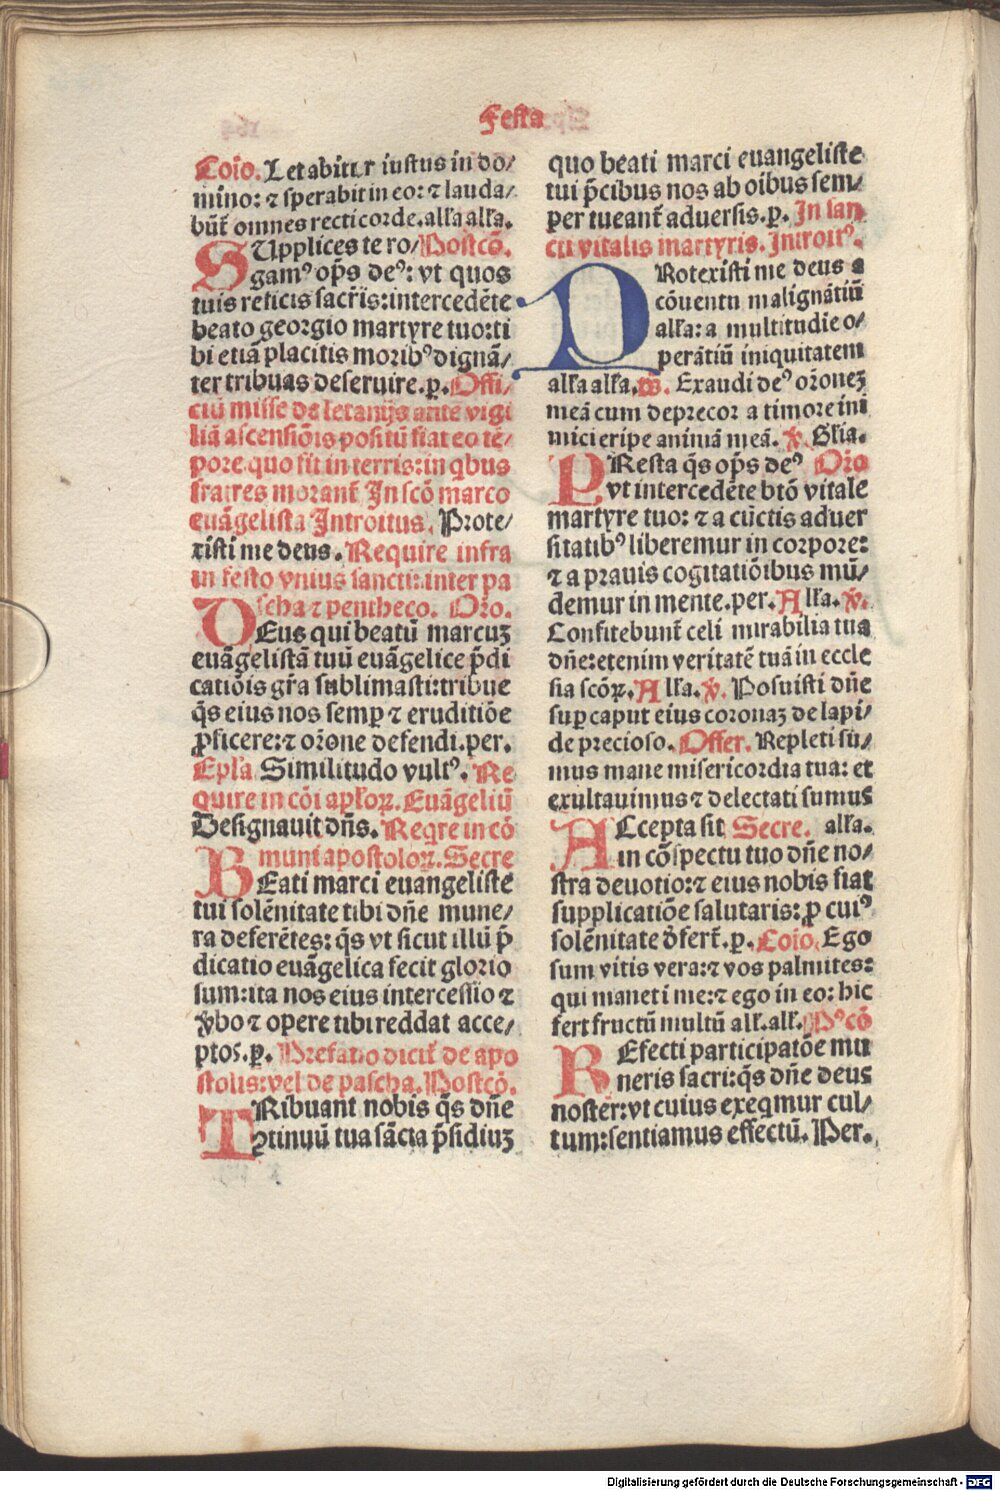 Festa
Coīo. Letabitur iustus in do/
mino: ⁊ sperabit in eo: ⁊ lauda/
būt̄ omnes recti corde. alľa alľa.
SUpplices te ro/ Postcō.
gamꝰ oṗs deꝰ: vt quos
tuis reficis sacr̄is: intercedēte
beato georgio martyre tuo: ti
bi etiā placitis moribꝰ dignā/
ter tribuas deseruire. p̱. Offi/
ciū misse de letanijs ante vigi
liā ascensiōis positū fiat eo tē/
pore quo fit in terris: in qbus
fratres morant̄ In scō marco
euāgelista Introitus. Prote/
xisti me deus. Require infra
in festo vnius sancti: inter pa
scha ⁊ pentheco. Oro.
DEus qui beatū marcuʒ
euāgelistā tuū euāgelice p̄di
catiōis gr̄a sublimasti: tribue
q̄s eius nos semp̱ ⁊ eruditiōe
ꝓficere: ⁊ or̄one defendi. per.
Epľa Similitudo vultꝰ. Re
quire in cōi apľoꝝ. Euāgeliū
Designauit dn̄s. Reqre in cō
muni apostoloꝝ. Secre
BEati marci euangeliste
tui solēnitate tibi dn̄e mune/
ra deferētes: q̄s vt sicut illū p̄
dicatio euāgelica fecit glorio
sum: ita nos eius intercessio ⁊
v̄bo ⁊ opere tibi reddat acce/
ptos. p̱. Prefatio dicit̄ de apo
stolis: vel de pascha. Postcō.
TRibuant nobis q̄s dn̄e
ꝯtinuū tua sācta p̄sidiuʒ
quo beati marci euangeliste
tui p̄cibus nos ab oībus sem/
per tueant̄ aduersis. p̱. In san
cti vitalis martyris. Introitꝰ.
PRotexisti me deus a
cōuentu malignātiū
alľa: a multitudie o/
perātiū iniquitatem
alľa alľa. ps. Exaudi deꝰ or̄oneʒ
meā cum deprecor a timore ini
mici eripe animā meā. ℣. Glia.
PResta q̄s oṗs deꝰ Oro
vt intercedēte btō vitale
martyre tuo: ⁊ a cūctis aduer
sitatibꝰ liberemur in corpore:
⁊ a prauis cogitatiōibus mū/
demur in mente. per. Alľa. ℣.
Confitebunt̄ celi mirabilia tua
dn̄e: etenim veritatē tuā in eccle
sia scōꝝ. Alľa. ℣. Posuisti dn̄e
sup̱ caput eius coronaʒ de lapi/
de precioso. Offer. Repleti su/
mus mane misericordia tua: et
exultauimus ⁊ delectati sumus
ACcepta sit Secre. alľa.
in cōspectu tuo dn̄e no/
stra deuotio: ⁊ eius nobis fiat
supplicatiōe salutaris: ꝓ cuiꝰ
solēnitate d̄fert̄. p̱. Coīo. Ego
sum vitis vera: ⁊ vos palmites:
qui manet i me: ⁊ ego in eo: hic
fert fructū multū alľ. alľ. Pꝰcō
REfecti participatōe mu
neris sacri: q̄s dn̄e deus
noster: vt cuius exeqmur cul/
tum: sentiamus effectū. Per.
Digitalisierung gefördert durch die Deutsche Forschungsgemeinschaft - DFG